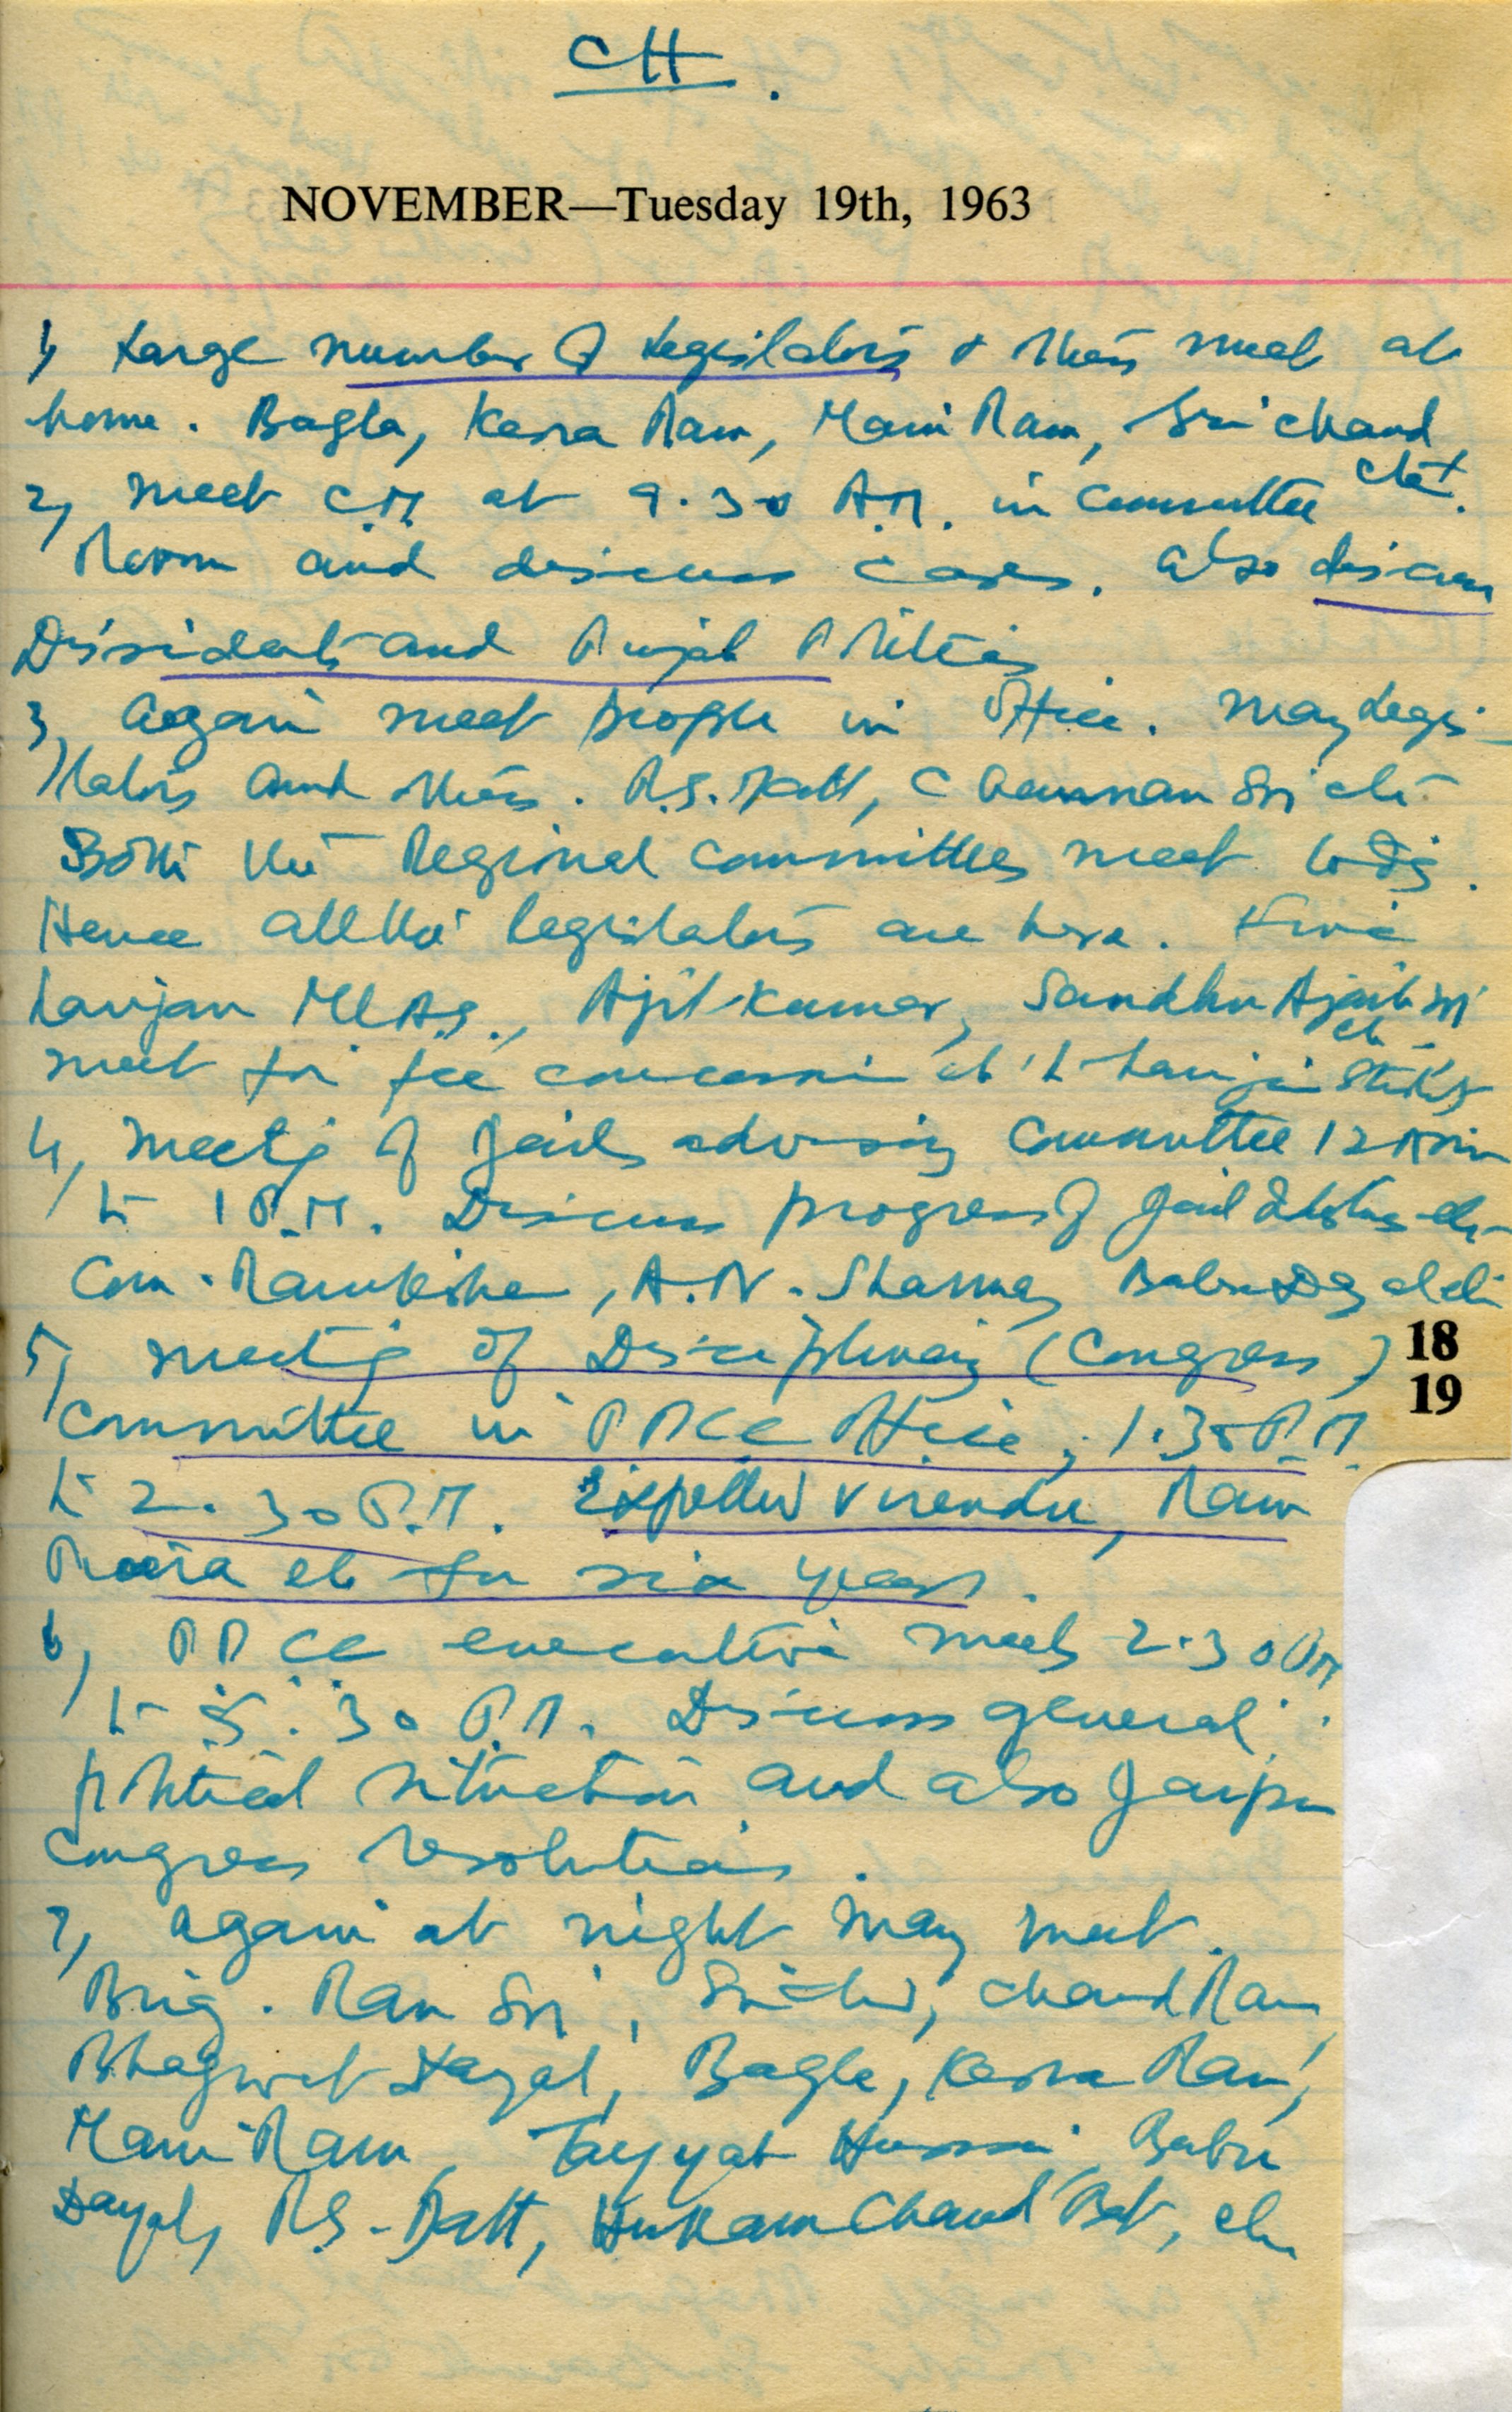 CH.
NOVEMBER—Tuesday 19th, 1963
1, Large number of Legislators & others meet at
home. Bagla, Kesra Ram, Mani Ram, Sri Chand
etc.
2, Meet C.M. at 9.30 A.M. in Committee
Room and discuss cases. Also discuss
Dissidents and Punjab Politics
3, Again meet people in Office. Many Legi-
slators and others. Channan
Both the Regional Committees meet today.
Hence all the legislators are here. Five
harijan MLAs., Ajit Kumar, Sandhu Ajaib
etc
meet for fee concession to harijan
4, Meeting of Jails advisory Committee 12
to 1 P.M. Discuss progress of Jail
Com. Ramkishan, A.N. Sharma, Babu Dayal etc
5, Meeting of Disciplinary (Congress)
18
19
Committee in PPCC Office, 1.30 P.M.
to 2.30 P.M. Expelled Virendra, Ram
Piara etc for six years.
6, PPCC executive meets 2.30 PM
to 5.30 P.M. Discuss general
political situation and also Jaipur
Congress resolutions.
7, Again at night many meet.
Brig. Ran Chand Ram,
Bhagwat Dayal, Bagla, Kesra Ram,
Mani Ram, Tayyab Hussain, Babu
Dayal, Hukam Chand etc